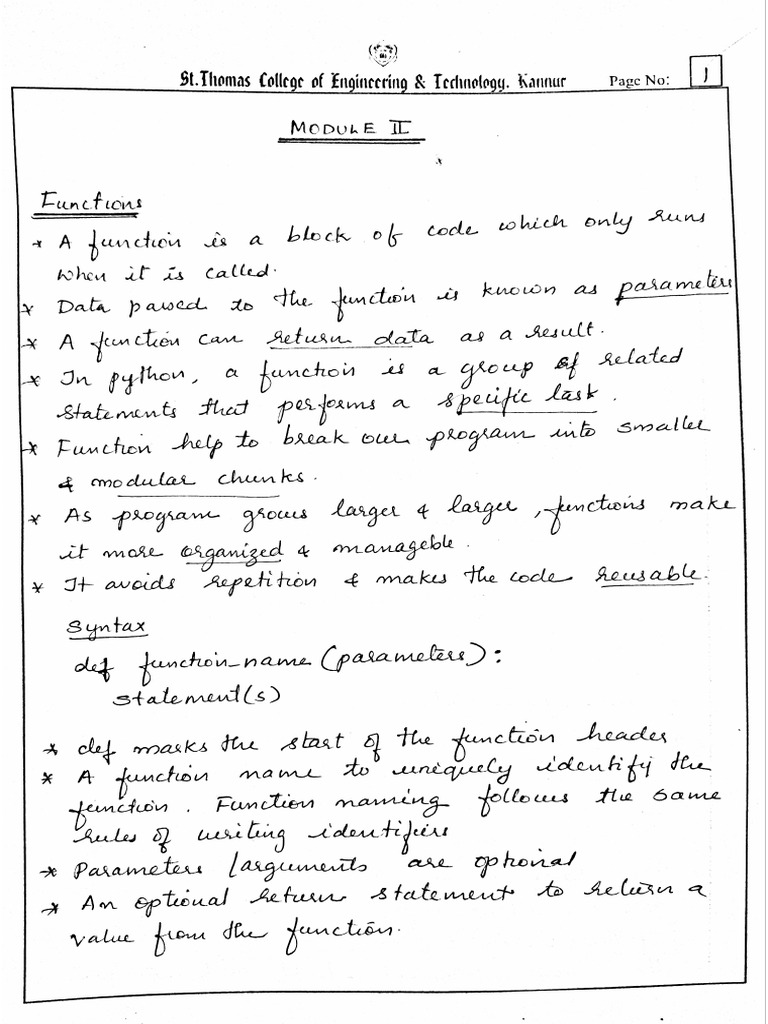 St.Thomas College of Engineering & Technology. Kannur Page No: 1
MODULE II
Functions
* A function is a block of code which only runs
when it is called.
* Data passed to the function is known as parameters
* A function can return data as a result.
* In python, a function is a group of related
statements that performs a specific task.
* Function help to break our program into smaller
& modular chunks.
* As program grows larger & larger, functions make
it more organized & manageble.
* It avoids repetition & makes the code reusable.
Syntax
def function_name (parameters):
statement(s)
* def marks the start of the function header
* A function name to uniquely identify the
function. Function naming follows the same
rules of writing identifiers
* Parameters / arguments are optional
* An optional return statement to return a
value from the function.